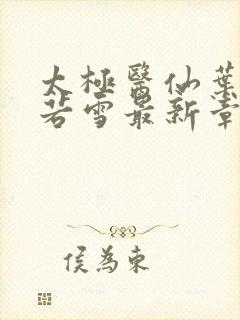 太極醫仙葉
若雪最新章
侯為東